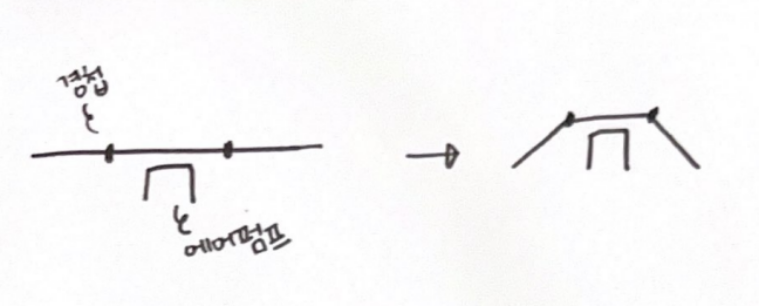 경첩
에어펌프